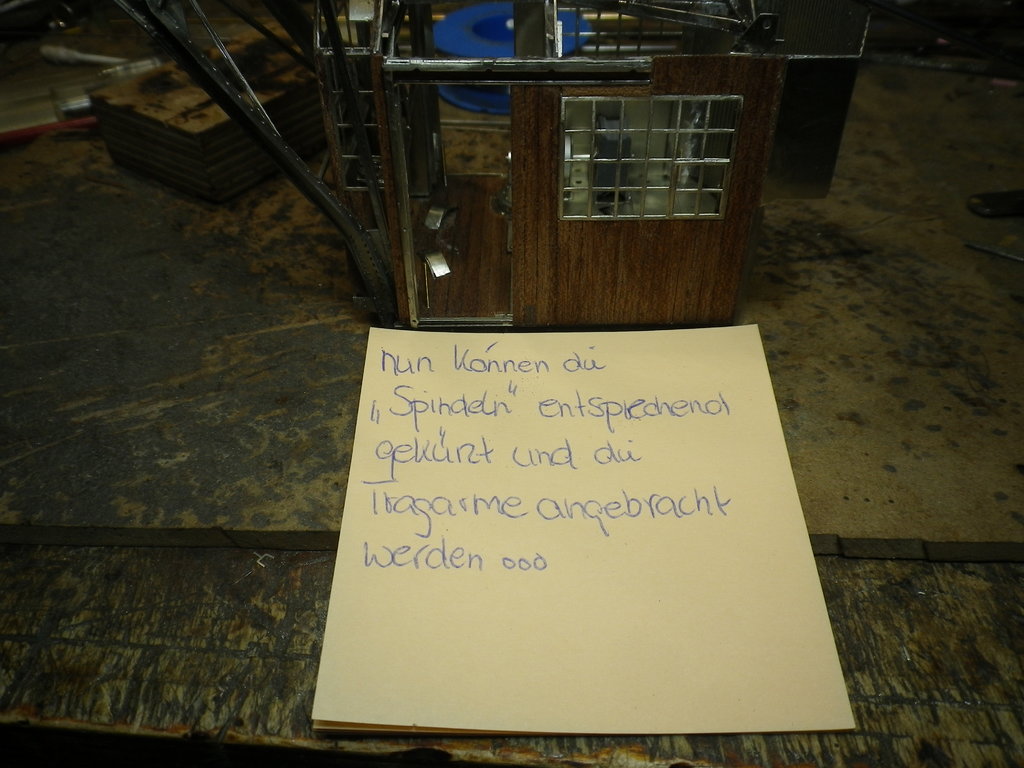 nun können die
„Spindeln" entsprechend
gekürzt und die
Tragarme angebracht
werden ooo